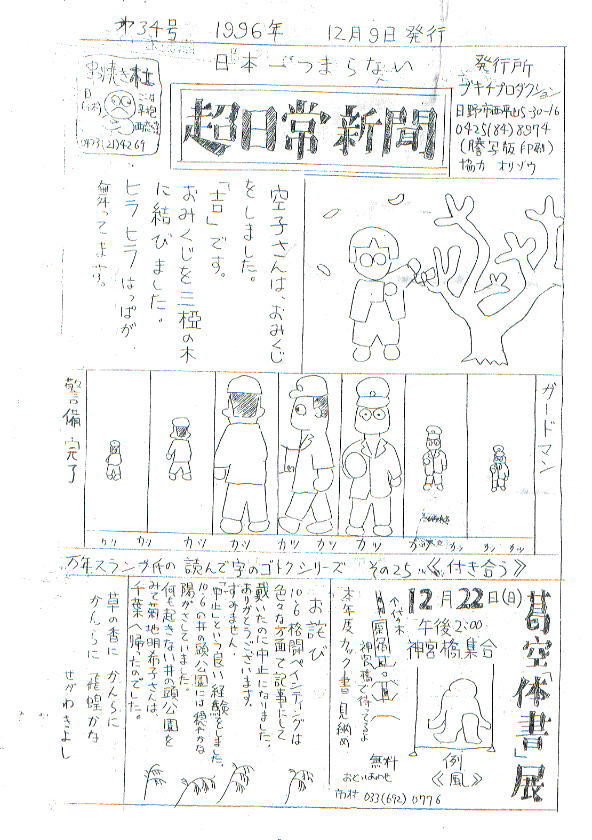 才34号 1996年 12月9日発行
日本一つまらない
超日常新聞
発行所
ブキチプロダクション
日野市西平山5-30-16
0425(84)8974
(謄写版印刷)
協力 オリゾウ
串焼き 杜
0423(21)4269
空子さんは、おみくじ
をしました。
「吉」です。
おみくじを三椏の木
に結びました。
ヒラヒラはっぱが
舞ってます。
ガードマン
カツ カツ カツ カツ カツ カツ カツ カツ カツ
警備完了
万年スランプ氏の読んで字のゴトクシリーズ その25…《付き合う》
葛空「体書」展
12月22日(日)
午後2:00
神宮橋集合
例
《風》
代々木
神宮橋で待ってるよ
本年度カック書見納め
無料
おといあわせ
033(692)0776
お詫び
10.6格闘ペインティングは
色々な方面で記事にして
戴いたのに中止になりました。
ありがとうございます。
すみません。
「中止」という良い経験をしました。
10.6の井の頭公園には穏やかな
陽がさしていました。
何も起きない井の頭公園を
みて菊地明希子さんは、
千葉へ帰ったのでした。
草の香に かんらに
かんらに 飛蝗かな
せがわきよし